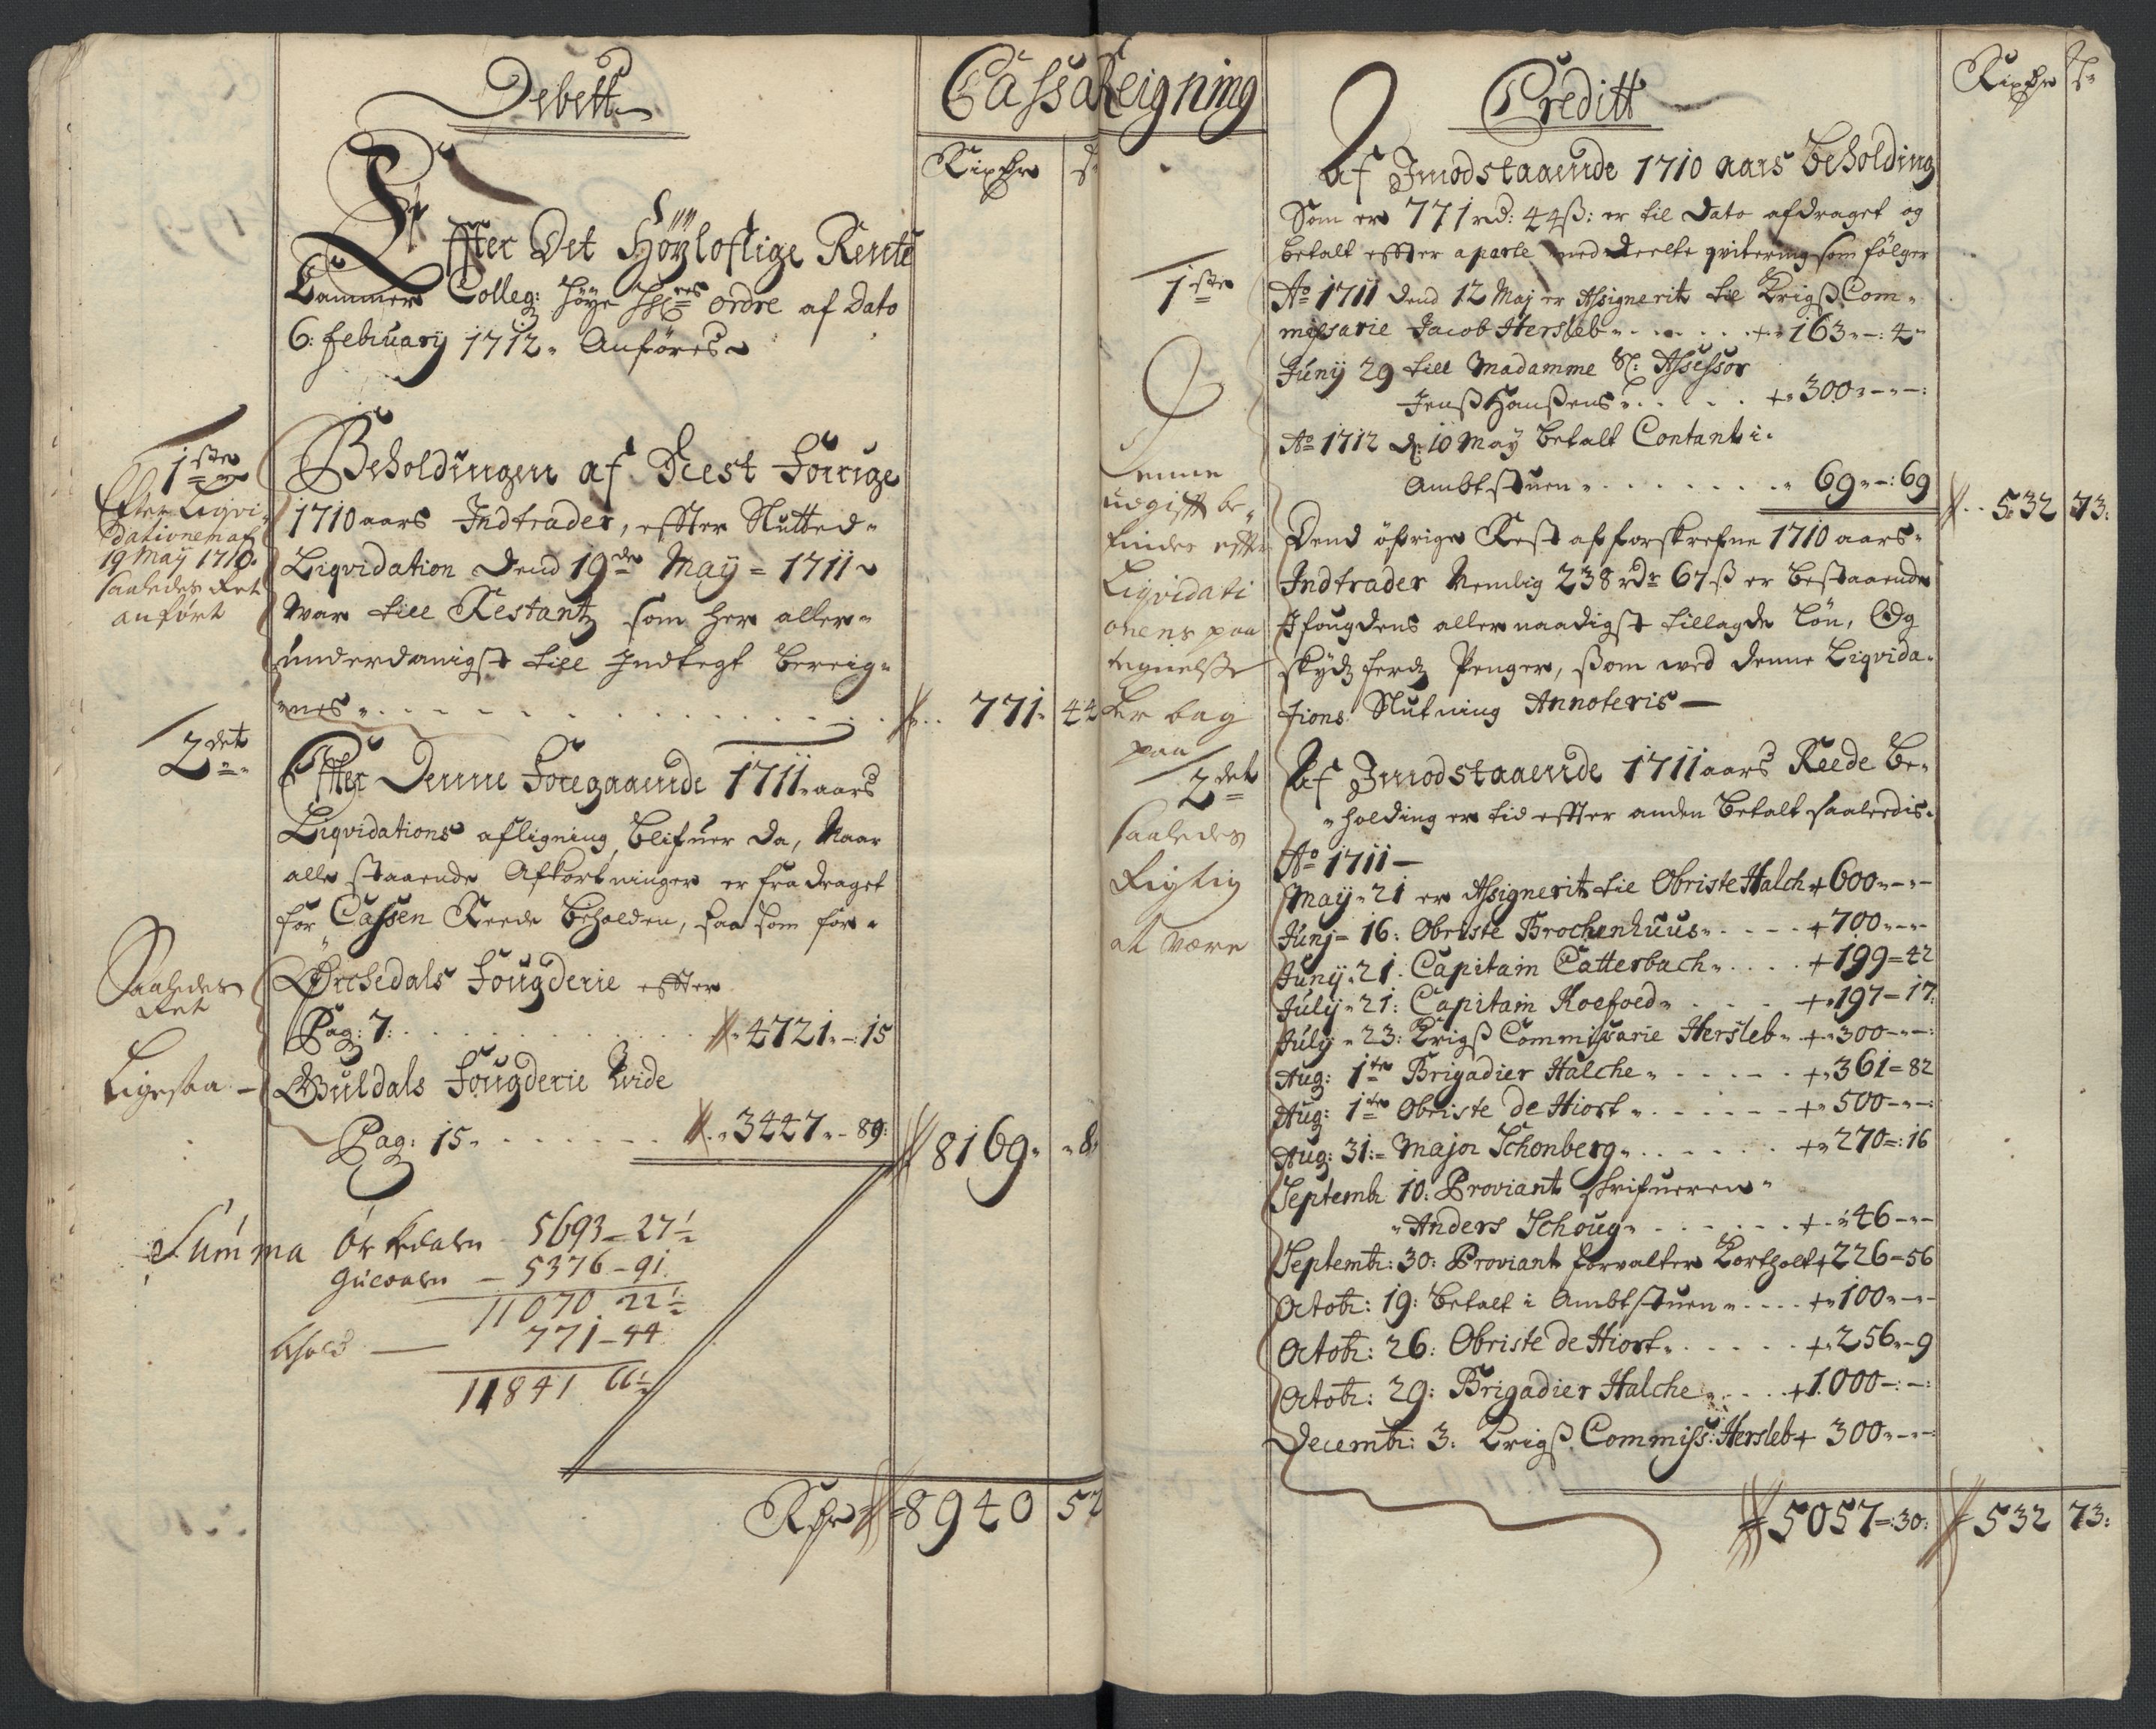 Debett
Cassa Reigning
Rixdr
ß
Effter Det Höyloflige Rente
Cammer Colleg: höye ordre af Dato
6: February 1712. Anföres
1ste
Efter Liqvi-
dationen af
19 May 1710.
saaledes Ret
anfört
Beholdingen af Nest Forrige
1710 aars Indtrader, effter Slutted
Liqvidation Dend 19de May = 1711
War till Restantz som her aller-
underdanigst till Indtegt bereig-
nes 771. 44
2det
Effter Denne Foregaaende 1711 aars
Liqvidations afligning blifuer da, Naar
alle staaende Afkortninger er fradraget
for Cassen Reede beholden, saa som for
Saaledes
Ret
Örchedals Fougderie effter
Pag: 7: 4721 - 15
Ligesaa
Guldals Fougderie Wide
Pag: 15 3447 - 89:
8169 8
Summa Örkedalen 5693 - 27½
Guldalen - 5376 - 91
11070 22½
Behold 771 - 44
11841 66½
Rdr 8940 52
Creditt
Rixdr ß
Af Imodstaaende 1710 aars beholding
Som er 771 rd: 44ß: er til Dato afdraget og
betalt effter aparte meddeelte qvitering som fölger
1ste
Ao 1711 Dend 12 Maj er Assignerit til Krigs Com-
missarie Jacob Hersleb 163 - 4
Junij 29 till Madamme Sl: Assessor
Jenss Hanssens 300
Ao 1712 d: 10 May betalt Contant i
Ambtstuen 69 -: 69
532 73:
Denne
udgifft be-
findes effter
Liqvidati
onens paa
tegnelsse
her bag
paa
Dend öfrige Rest af forskrefne 1710 aars
Indtrader Nemlig 238 rdr 67 ß er bestaaende
I fougdens allernaadigst tillagde Lön, Og
skydtzferdtz Penger, ssom wed denne Liqvida-
tions Slutning Annoteris
2det
Saaledes
Rigtig
at være
Af Imodstaaende 1711 aars Reede be-
holding er tid effter anden betalt saaledis.
Ao 1711
May 21 er Assignerit til Obriste Halch + 600
Junj 16: Obriste Brochenhuus + 700
Junij 21. Capitain Catterbach + 199 = 42
July 21: Capitain Koefoed + 197 - 17:
July 23: Krigs Commissarie Hersleb + 300
Aug: 1te Brigadier Halche + 361 = 82
Aug: 1te Obriste de Hiort + 500
Aug: 31: Major Schonberg + 270 =: 16
Septembr 10: Proviant skrifueren
Anders Schoug + 46
Septembr: 30: Proviant forvalter Kortholt + 226 = 56
Octobr: 19: betalt i Ambtstuen + 100
Octobr: 26: Obriste de Hiort + 256 - 9
Octobr: 29: Brigadier Halche + 1000
Decembr: 3: Krigs Commiss: Hersleb + 300
5057 =: 30: 532 73: